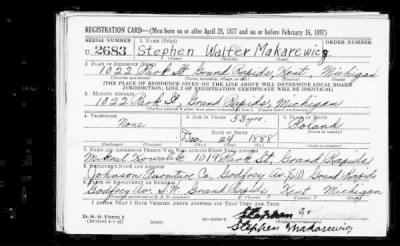 REGISTRATION CARD—(Men born on or after April 28, 1877 and on or before February 16, 1897)
SERIAL NUMBER 1. NAME (Print)
U. 2683 Stephen Walter Makarewicz
2. PLACE OF RESIDENCE (Print)
1022 Park St. Grand Rapids, Kent Michigan
[THE PLACE OF RESIDENCE GIVEN ON THE LINE ABOVE WILL DETERMINE LOCAL BOARD
JURISDICTION; LINE 2 OF REGISTRATION CERTIFICATE WILL BE IDENTICAL]
3. MAILING ADDRESS
1022 Park St. Grand Rapids, Michigan
4. TELEPHONE 5. AGE IN YEARS 6. PLACE OF BIRTH
None 53 yrs. Poland
DATE OF BIRTH
Dec. 24 1888
7. NAME AND ADDRESS OF PERSON WHO WILL ALWAYS KNOW YOUR ADDRESS
1019 Park St. Grand Rapids
8. EMPLOYER'S NAME AND ADDRESS
Johnson Furniture Co. Godfrey Av. S.W. Grand Rapids
9. PLACE OF EMPLOYMENT OR BUSINESS
Godfrey Av. S.W. Grand Rapids, Kent Michigan
I AFFIRM THAT I HAVE VERIFIED ABOVE ANSWERS AND THAT THEY ARE TRUE.
D. S. S. Form 1
(Revised 4-1-42)
Stephen
Stephen Makarewicz